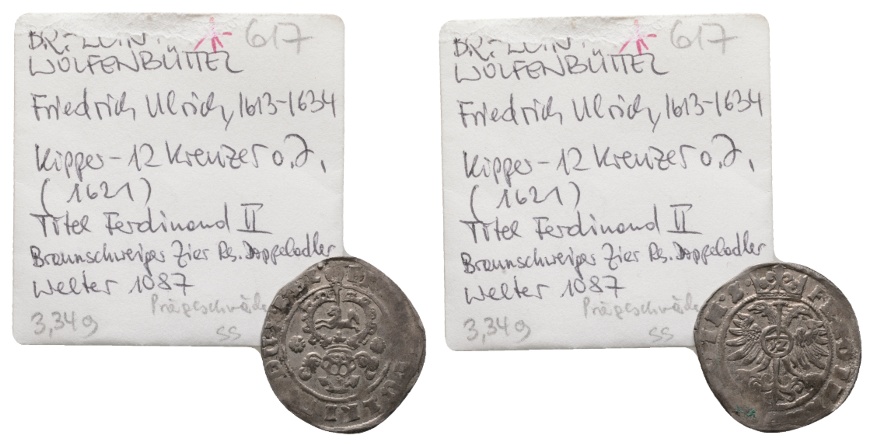 BR.-LÜN. 617
WOLFENBÜTTEL
Friedrich Ulrich, 1613-1634
Kipper-12 Kreuzer o.J.
(1621)
Titel Ferdinand II
Braunschweiger Zier Rs. Doppeladler
Welter 1087
Prägeschwäche
3,34g ss
BR.-LÜN. 617
WOLFENBÜTTEL
Friedrich Ulrich, 1613-1634
Kipper-12 Kreuzer o.J.
(1621)
Titel Ferdinand II
Braunschweiger Zier Rs. Doppeladler
Welter 1087
Prägeschwäche
3,34g ss
12